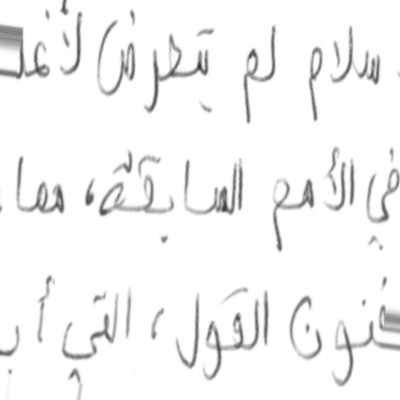 سلام لم يتعرض لأغلـ
في الأمم السابقة، مما
فنون القول، التي أ